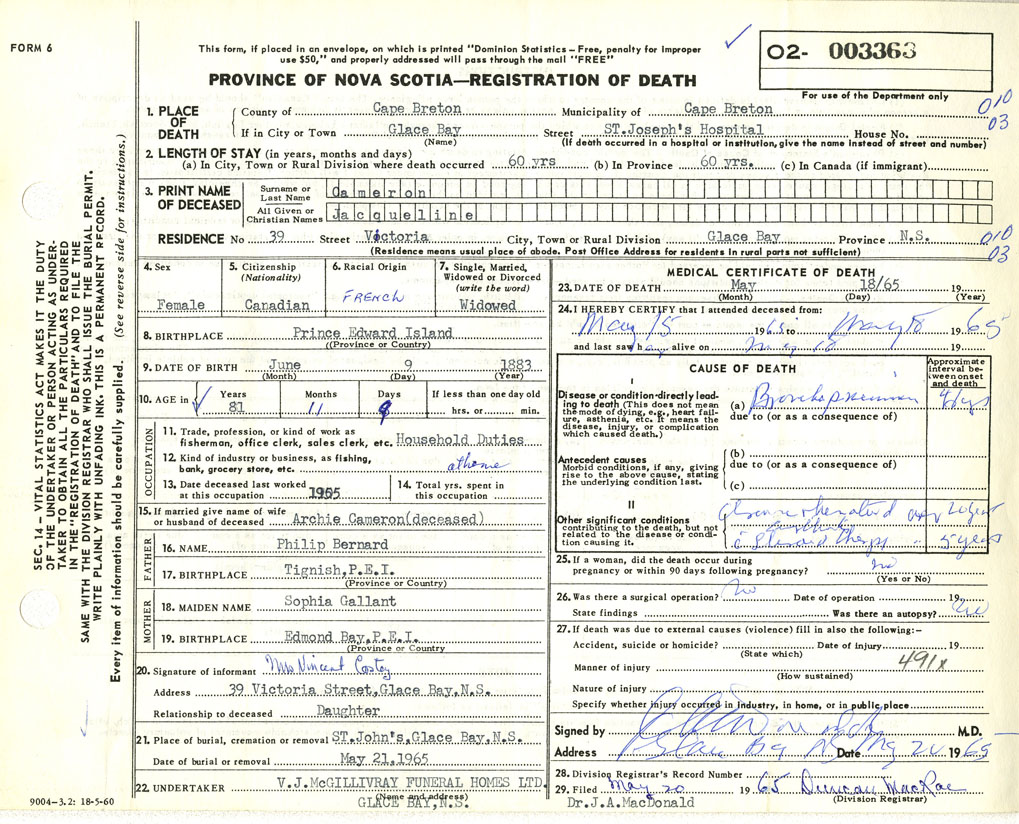 FORM 6
This form, if placed in an envelope, on which is printed "Dominion Statistics – Free, penalty for improper
use $50," and properly addressed will pass through the mail "FREE"
02- 003363
For use of the Department only
PROVINCE OF NOVA SCOTIA—REGISTRATION OF DEATH
010
03
1. PLACE OF DEATH
County of Cape Breton Municipality of Cape Breton
If in City or Town Glace Bay Street ST.Joseph's Hospital House No.
(Name) (If death occurred in a hospital or institution, give the name instead of street and number)
2. LENGTH OF STAY (in years, months and days)
(a) In City, Town or Rural Division where death occurred 60 yrs (b) In Province 60 yrs. (c) In Canada (if immigrant)
3. PRINT NAME OF DECEASED
Surname or Last Name Cameron
All Given or Christian Names Jacqueline
RESIDENCE No 39 Street Victoria City, Town or Rural Division Glace Bay Province N.S.
(Residence means usual place of abode. Post Office Address for residents in rural parts not sufficient)
010
03
4. Sex Female
5. Citizenship (Nationality) Canadian
6. Racial Origin FRENCH
7. Single, Married, Widowed or Divorced (write the word) Widowed
8. BIRTHPLACE Prince Edward Island
((Province or Country)
9. DATE OF BIRTH June 9 1883
(Month) (Day) (Year)
10. AGE in Years 81 Months 11 Days 9 If less than one day old hrs. or min.
OCCUPATION
11. Trade, profession, or kind of work as
fisherman, office clerk, sales clerk, etc. Household Duties
12. Kind of industry or business, as fishing,
bank, grocery store, etc. at home
13. Date deceased last worked
at this occupation 1955
14. Total yrs. spent in
this occupation
15. If married give name of wife
or husband of deceased Archie Cameron(deceased)
FATHER
16. NAME Philip Bernard
17. BIRTHPLACE Tignish,P.E.I.
(Province or Country)
MOTHER
18. MAIDEN NAME Sophia Gallant
19. BIRTHPLACE Edmond Bay,P.E.I.
(Province or Country)
20. Signature of informant Mrs Vincent
Address 39 Victoria Street,Glace Bay,N.S.
Relationship to deceased Daughter
21. Place of burial, cremation or removal ST.John's,Glace Bay,N.S.
Date of burial or removal May 21,1965
22. UNDERTAKER V.J.McGILLIVRAY FUNERAL HOMES LTD.
(Name and address)
GLACE BAY,N.S.
MEDICAL CERTIFICATE OF DEATH
23. DATE OF DEATH May 18/65 19
(Month) (Day) (Year)
24. I HEREBY CERTIFY that I attended deceased from:
May 15 1965 to May 18 1965
and last saw h alive on May 18 19
CAUSE OF DEATH
Approximate interval between onset and death
I
Disease or condition directly leading to death (This does not mean
the mode of dying, e.g., heart failure, asthenia, etc. It means the
disease, injury, or complication
which caused death.)
(a) Bronchopneumonia days
due to (or as a consequence of)
Antecedent causes
Morbid conditions, if any, giving
rise to the above cause, stating
the underlying condition last.
(b)
due to (or as a consequence of)
(c)
II
Other significant conditions
contributing to the death, but not
related to the disease or condition causing it.
rheumatoid
arthritis
Steroid therapy 5 years
25. If a woman, did the death occur during
pregnancy or within 90 days following pregnancy? no
(Yes or No)
26. Was there a surgical operation? no Date of operation 19
State findings Was there an autopsy? no
27. If death was due to external causes (violence) fill in also the following:–
Accident, suicide or homicide? Date of injury 19
(State which)
491x
Manner of injury
(How sustained)
Nature of injury
Specify whether injury occurred in industry, in home, or in public place
Signed by M.D.
Address Glace Bay NS Date May 20 1965
28. Division Registrar's Record Number
29. Filed May 20 1965 Duncan MacRae
(Division Registrar)
Dr.J.A.MacDonald
9004-3.2: 18-5-60
SEC. 14 – VITAL STATISTICS ACT MAKES IT THE DUTY
OF THE UNDERTAKER OR PERSON ACTING AS UNDER-
TAKER TO OBTAIN ALL THE PARTICULARS REQUIRED
IN THE "REGISTRATION OF DEATH" AND TO FILE THE
SAME WITH THE DIVISION REGISTRAR WHO SHALL ISSUE THE BURIAL PERMIT.
WRITE PLAINLY WITH UNFADING INK. THIS IS A PERMANENT RECORD.
Every item of information should be carefully supplied. (See reverse side for instructions.)